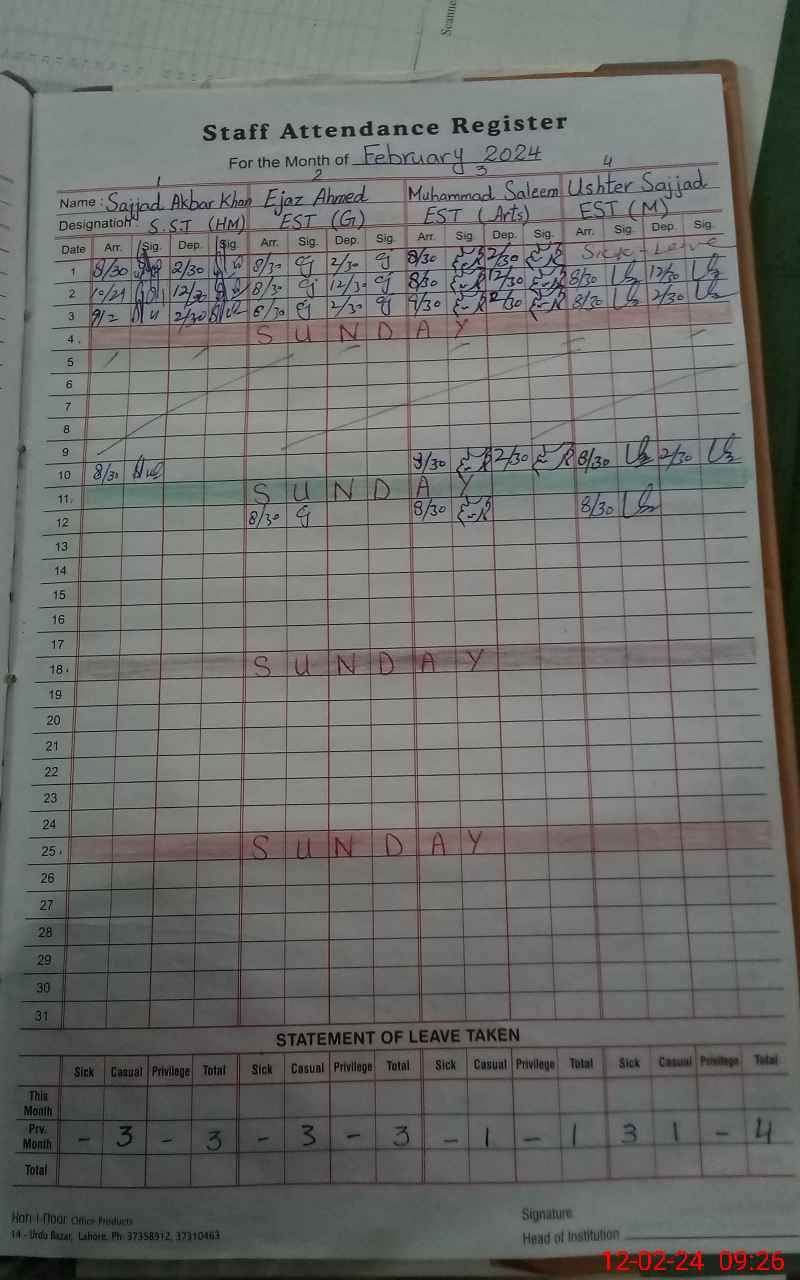 Scanne
Staff Attendance Register
For the Month of February 2024
1 2 3 4
Name : Sajjad Akbar Khan Ejaz Ahmed Muhammad Saleem Ushter Sajjad
Designation : S.S.T (HM) EST (G) EST (Arts) EST (M)
Date Arr. Sig. Dep. Sig. Arr. Sig. Dep. Sig. Arr. Sig. Dep. Sig. Arr. Sig. Dep. Sig.
1 8/30 2/30 8/30 2/30 8/30 2/30 Sick - Leave
2 12/30 8/30 12/30 8/30 12/30 8/30 12/30
3 2/30 8/30 2/30 2/30 8/30 2/30
4 SUNDAY
5
6
7
8
9
10 8/30 2/30 8/30 2/30
11 SUNDAY
12 8/30 8/30 8/30
13
14
15
16
17
18 SUNDAY
19
20
21
22
23
24
25 SUNDAY
26
27
28
29
30
31
STATEMENT OF LEAVE TAKEN
Sick Casual Privilege Total Sick Casual Privilege Total Sick Casual Privilege Total Sick Casual Privilege Total
This Month
Prv. Month - 3 - 3 - 3 - 3 - 1 - 1 3 1 - 4
Total
Koh-i-Noor Office Products
14 - Urdu Bazar, Lahore. Ph: 37358912, 37310463
Signature
Head of Institution
12-02-24 09:26